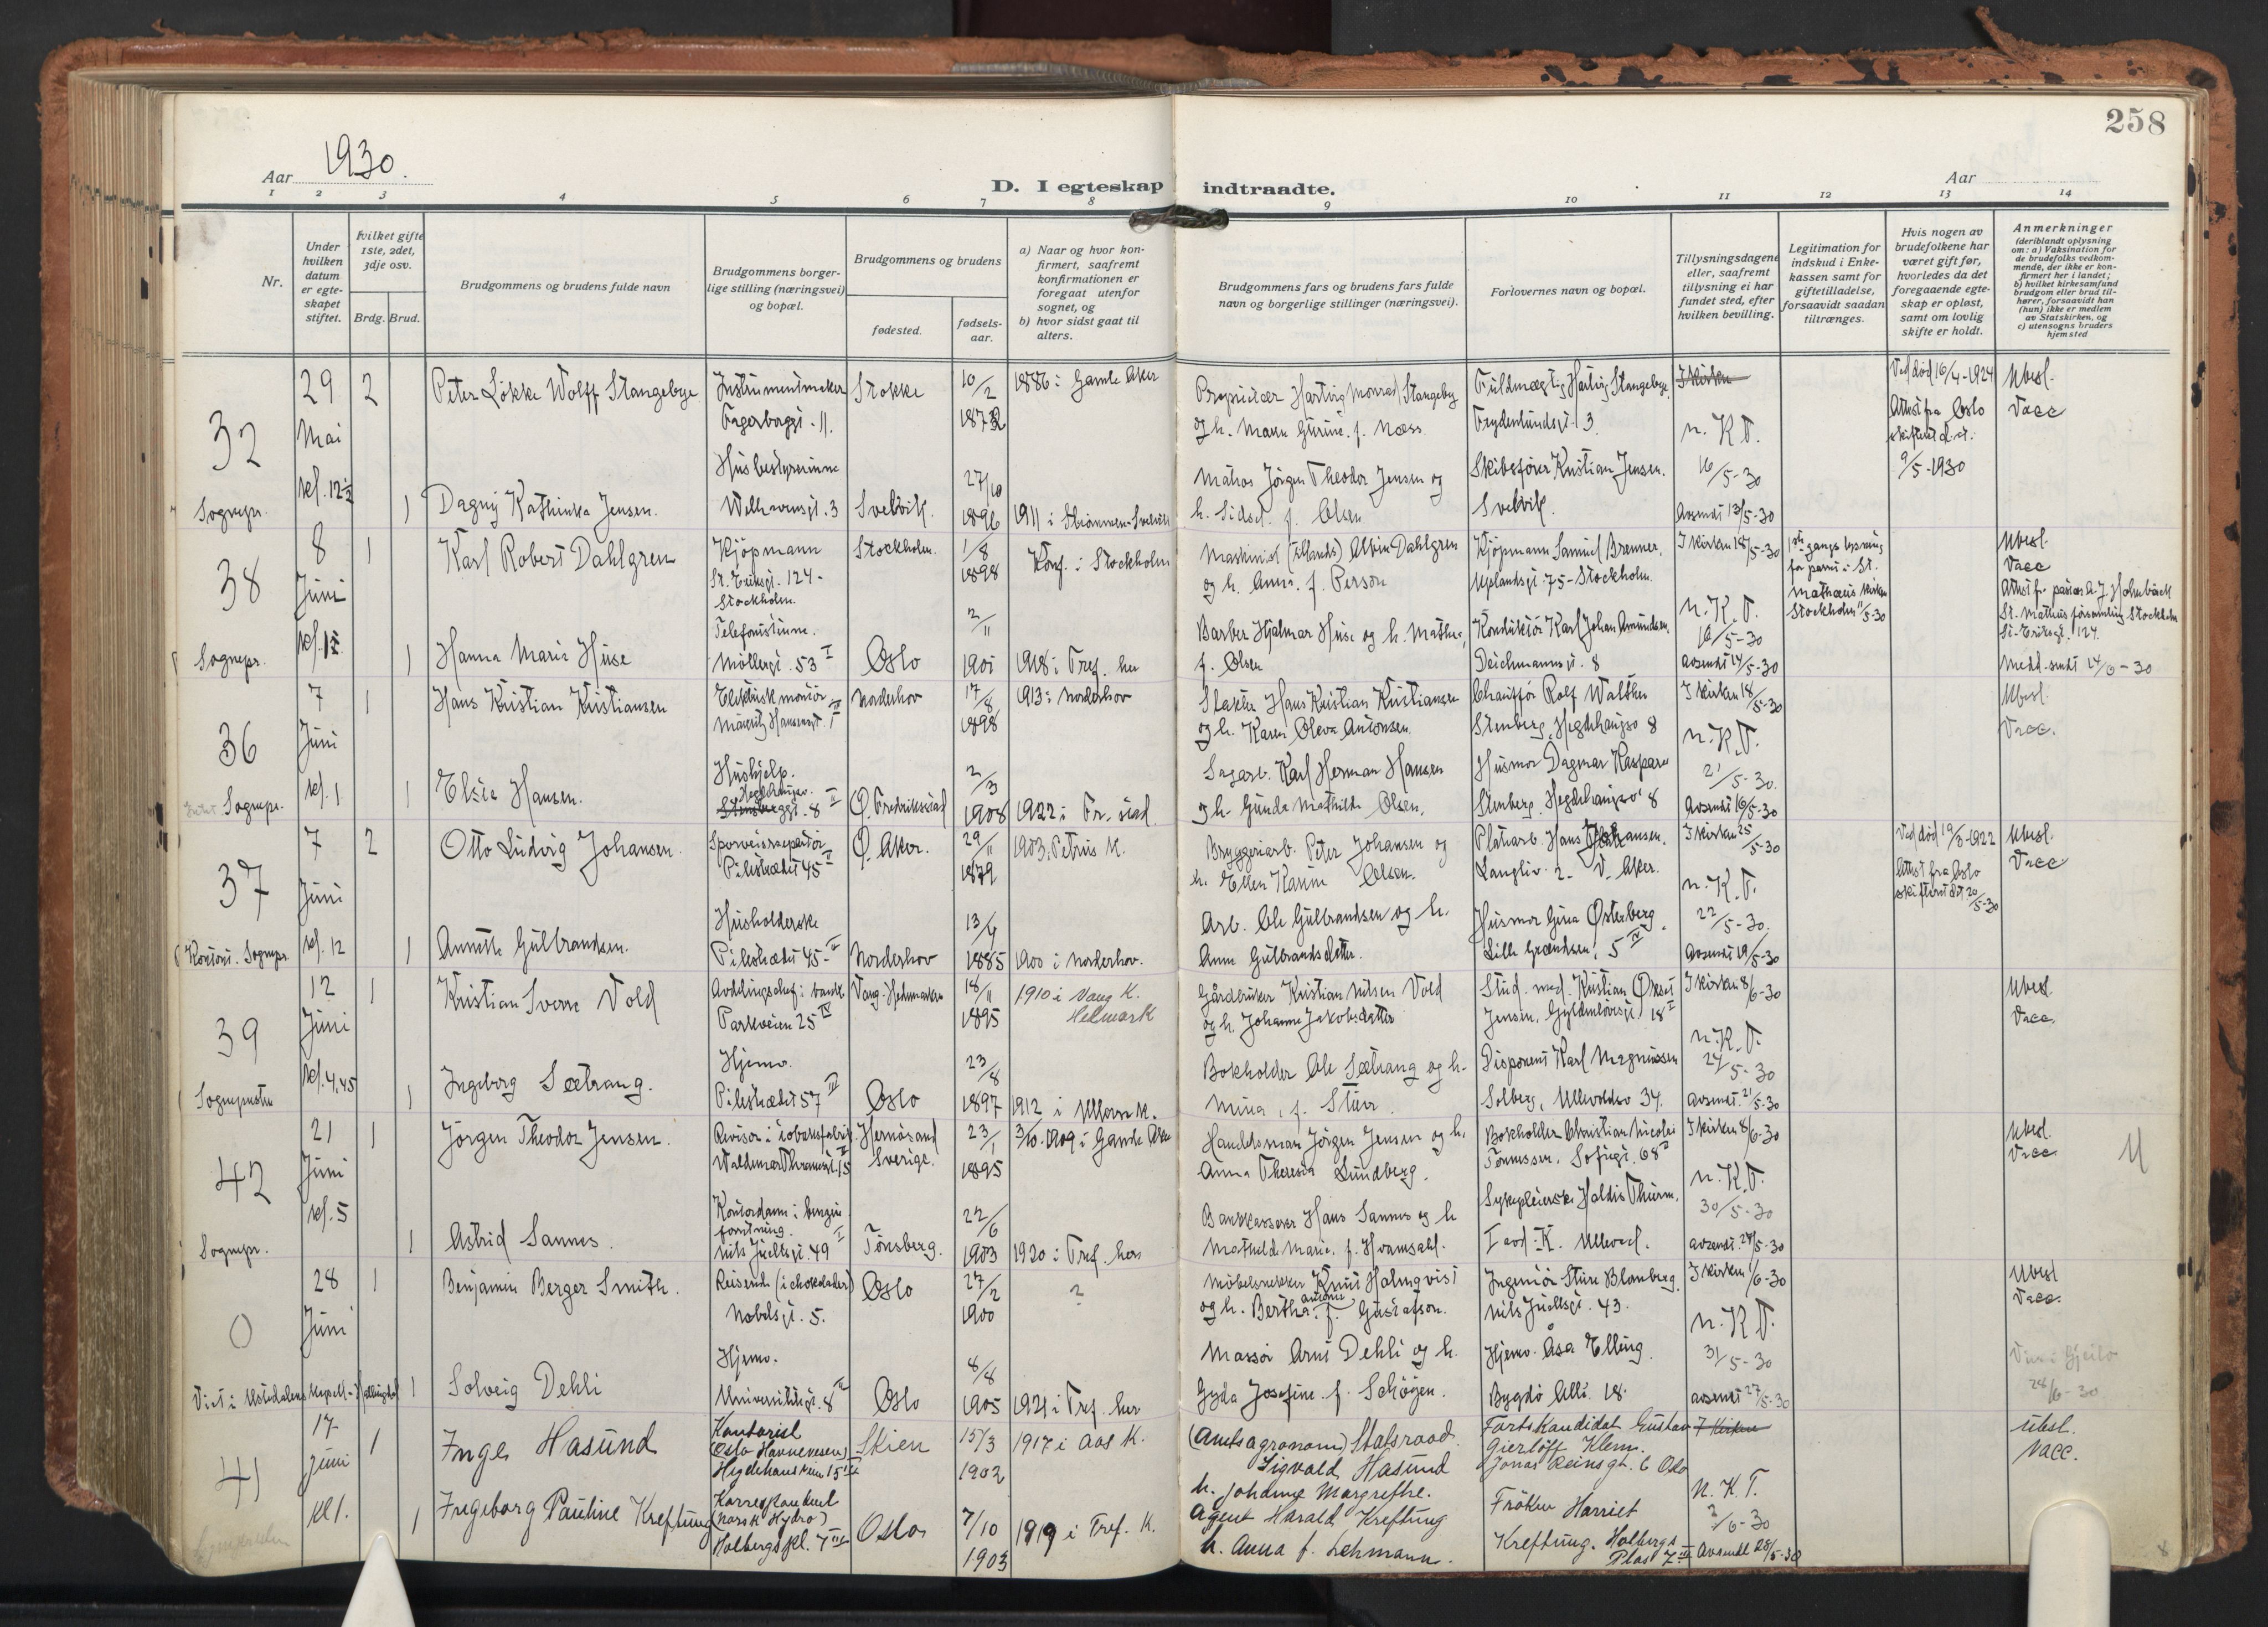 258
Aar 1930.
D. I egteskap indtraadte.
Aar
1 2 3 4 5 6 7 8 9 10 11 12 13 14
Nr.
Under hvilken datum er egteskapet stiftet.
Hvilket gifte 1ste, 2det, 3dje osv.
Brdg. Brud.
Brudgommens og brudens fulde navn
Brudgommens borgerlige stilling (næringsvei) og bopæl.
Brudgommens og brudens
fødested.
fødselsaar.
a) Naar og hvor konfirmert, saafremt konfirmationen er foregaat utenfor sognet, og
b) hvor sidst gaat til alters.
Brudgommens fars og brudens fars fulde navn og borgerlige stillinger (næringsvei).
Forlovernes navn og bopæl.
Tillysningsdagene eller, saafremt tillysning ei har fundet sted, efter hvilken bevilling.
Legitimation for indskud i Enkekassen samt for giftetilladelse, forsaavidt saadan tiltrænges.
Hvis nogen av brudefolkene har været gift før, hvorledes da det foregaaende egteskap er opløst, samt om lovlig skifte er holdt.
Anmerkninger (deriblandt oplysning om: a) Vaksination for de brudefolks vedkommende, der ikke er konfirmert her i landet; b) hvilket kirkesamfund brudgom eller brud tilhører, forsaavidt han (hun) ikke er medlem av Statskirken, og c) utensogns bruders hjemsted
32
29 Mai kl. 12½
Sognepr.
2
Peter Løkke Wolff Stangebye
Instrumentmaker
Fagerborggt. 11.
Stokke
10/2 1872
1886 i Gamle Aker
Proprietær Hartvig Monrad Stangeby
og h. Maren Gurine f. Næss
Fuldmægtig Hartvig Stangebye
Frydenlundsgt. 3
I kirken
n. K. T.
16/5-30
Avsendt 13/5-30
Ved død 16/4-1924
Attest fra Oslo
skifteret d.d.
9/5-1930
Ubesl.
Vacc
1
Dagny Kathinka Jensen.
Husbestyrerinne
Welhavensgt. 3
Svelvik.
27/10 1896
1911 i Strømmen-Svelvik
Matros Jörgen Theodor Jensen og
h. Sidsel f. Olsen
Skibsfører Kristian Jensen.
Svelvik.
38
8 Juni kl. 1½
Sognepr.
1
Karl Robert Dahlgren
Kjöpmann
St. Eriksgt. 124-
Stockholm.
Stockholm.
1/8 1898
Konf. i Stockholm
Maskinist (tillands) Albin Dahlgren
og h. Anna f. Person
Kjöpmann Samuel Brenner,
Uplandsgt. 75-Stockholm.
I kirken 18/5-30
n. K. T.
16/5-30
avsendt 14/5-30
1ste gangs lysning
for parret i St.
Mathæus kirken
Stockholm 11/5-30
Ubesl.
Vacc
Attest fr. pastor J. Holmbäck
St. Matheus församling Stockholm
St-Eriksgt. 124.
Medd. sendt 14/6-30
1
Hanna Marie Huse
Telefonistinne.
Möllergt. 53 I
Oslo
2/11 1901
1918 i Tref. her
Barber Hjalmar Huse og h. Mathe,
f. Olsen
Konduktör Karl Johan Amundsen,
Deichmannsgt. 8
36
7 Juni kl. 1
Sognepr.
1
Hans Kristian Kristiansen
Elektrisk montör
Mauritz Hansensgt. 1
Norderhov
17/8 1898
1913 i Norderhov
Slakter Hans Kristian Kristiansen
og h. Karen Oleva Antonsen.
Chauffør Rolf Walther
Stenberg, Hegdehaugsv 8
I kirken 18/5-30
n. K. T.
21/5-30.
Avsendt 16/5-30
Ubesl.
Vacc.
1
Elsie Hansen.
Hushjelp.
Hegdehaugsv.
8 II
Ö. Fredrikstad
2/3 1908
1922 i Fr. stad.
Sagarb. Karl Herman Hansen
og h. Gunda Mathilde Olsen.
Husmor Dagmar Kaspara
Stenberg, Hegdehaugsv 8
37
7 Juni kl. 12
Kontoret. Sognepr.
2
Otto Ludvig Johansen.
Sporveisreparatör
Pilestrædet 45 II
Ö. Aker.
29/11 1879
1903. Petrus K.
Bryggeriarb. Peter Johansen og
h. Ellen Karine Olsen.
Platearb. Hans Johansen.
Langliv. 2- V. Aker.
I kirken 25/5-30
n. K. T.
22/5-30.
Avsendt 19/5-30
Ved død 19/3-1922
Attest fra Oslo
skifteret dat. 20/5-30
Ubesl.
Vacc
1
Annette Gulbrandsen.
Husholderske
Pilestrædet 45 II
Norderhov
13/4 1885
1900 i Norderhov.
Arb. Ole Gulbrandsen og h.
Anne Gulbrandsdatter.
Husmor Gina Østerberg.
Lille Grændsen, 5 IV
39
12 Juni kl. 4.45
1
Kristian Sverre Vold
Avdelingschef i bank
Parkveien 25 IV
Vang-Hedemarken
18/11 1895
1910 i Vang K.
Hedmark
Gårdbruker Kristian Nilsen Vold
og h. Johanne Jakobsdatter
Stud. med. Kristian Økset
Jensen, Gyldenløvesgt 18 I
I kirken 8/6-30
n. K. T.
24/5-30
avsendt 21/5-30
Ubesl.
Vacc.
1
Ingeborg Sætrang.
Hjemv.
Pilestrædet 57 III
Oslo
23/8 1897
1912 i Ullern K.
Bokholder Ole Sætrang og h.
Mina, f. Steen.
Disponent Karl Magnussen
Solberg, Ullevoldsv 34.
42
21 Juni kl. 5
Sognepr.
1
Jørgen Theodor Jensen.
Revisor i tobaksfabrik
Waldemar Thranesgt. 15
Hernösand
Sverige.
23/1 1895
3/10-1909 i Gamle Aker
Handelsman Jörgen Jensen og h.
Anna Theresia Lundberg.
Bokholder Christian Nicolai
Tønnessen, Sofiegt. 68 II
I kirken 8/6-30
n. K. T.
30/5-30
avsendt 24/5-30
Ubesl.
Vacc
1
Astrid Sannes.
Kontordame i bensin
forretning.
Nils Juelsgt. 49 I
Tönsberg.
22/6 1903
1920 i Tref. her
Bankkasserer Hans Sannes og h
Mathilde Marie, f. Hvamsahl.
Sykepleierske Haldis Thurm.
I avd. K. Ullevaal.
0
28 Juni
Viet i Ustedalens kapell-Hallingdal
1
Benjamin Berger Smith.
Reisende (i chokolader)
Nobelsgt. 5.
Oslo
27/2 1900
?
Möbelsnekker Knut Holmqvist
og h. Bertha Antonie f. Gustafson.
Ingeniör Sture Blomberg.
Nils Juelsgt. 43.
I kirken 1/6-30
n. K. T.
31/5-30
avsendt 27/5-30
Ubesl
Vacc.
1
Solveig Dehli
Hjemv.
Universitetsgt. 8 II
Oslo
8/8 1905
1921 i Tref. her
Massör Arnt Dehli og h.
Gyda Josefine f. Schöyen.
Hjemv. Åsa Elling.
Bygdö Allé. 18.
28/6-30
41
17 Juni kl 1.
1
Inge Hasund
Kontorist
(Oslo Havnevesen)
Hegdehausveien 15 II
Skien
15/3 1902
1917 i Aas K.
(Amtsagronom) Statsraad
Sigvald Hasund
h. Johanne Margrethe.
Forts Kandidat Gustav
Gierløff Klem.
Jonas Reinsgt. 6 Oslo
I kirken
N. K. T.
2/6-30
Avsendt 28/5-30
Ubesl.
Vacc.
1
Ingeborg Pauline Kreftung
Korrespondent
(Norsk Hydro)
Holbergs pl. 7 III
Oslo
7/10 1903
1919 i Tref. K.
Agent Harald Kreftung
h. Anna f. Lehmann.
Frøken Harriet
Kreftung. Holbergs
Plas 7 III